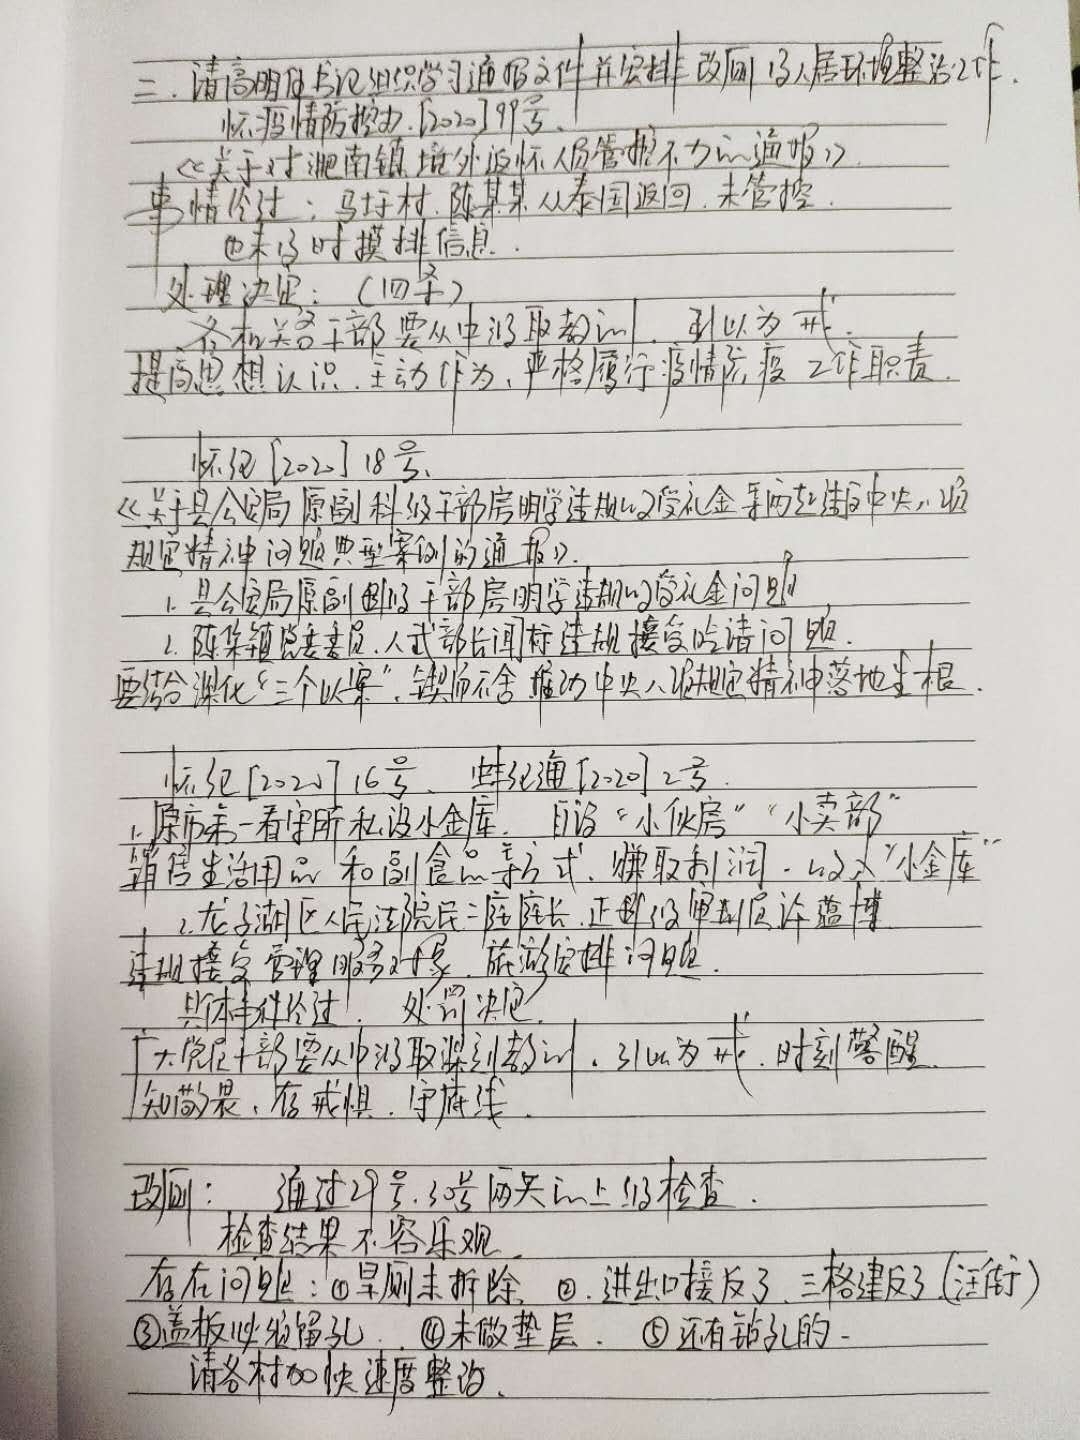 二.请高明月书记组织学习通报文件并安排改厕及人居环境整治工作.
怀疫情防控办.[2020]99号.
《关于对淝南镇境外返怀人员管控不力的通报》.
事情经过:马圩村.陈某某从泰国返回.未管控.
也未及时摸排信息.
处理决定:(四条)
各相关各干部要从中汲取教训.引以为戒.
提高思想认识.主动作为、严格履行疫情防疫工作职责.
怀纪[2020]18号.
《关于县公安局原副科级干部房明学违规收受礼金等两起违反中央八项
规定精神问题典型案例的通报》.
1.县公安局原副科级干部房明学违规收受礼金问题
2.陈集镇党委委员.人武部长闻标违规接受吃请问题.
要结合深化“三个以案”.锲而不舍推动中央八项规定精神落地生根.
怀纪[2020]16号、蚌纪通[2020]2号.
1.原市第一看守所私设小金库.自设“小伙房”“小卖部”
销售生活用品和副食品等方式.赚取利润.收入“小金库”
2.龙子湖区人民法院民二庭庭长.正科级审判员许蕴博
违规接受管理服务对象.旅游安排问题.
具体事件经过.处罚决定.
广大党员干部要从中汲取深刻教训.引以为戒.时刻警醒.
知敬畏、存戒惧.守底线.
改厕:通过29号.30号两天的上级检查.
检查结果不容乐观.
存在问题:①旱厕未拆除②.进出口接反了.三格建反了.(汪街)
③盖板必须留孔.④未做垫层.⑤还有钻孔的.
请各村加快速度整治.